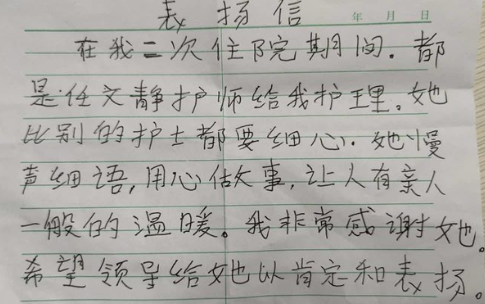 表扬信
年 月 日
在我二次住院期间.都
是任文静护师给我护理。她
比别的护士都要细心.她慢
声细语,用心做事,让人有亲人
一般的温暖。我非常感谢她。
希望领导给她以肯定和表扬。